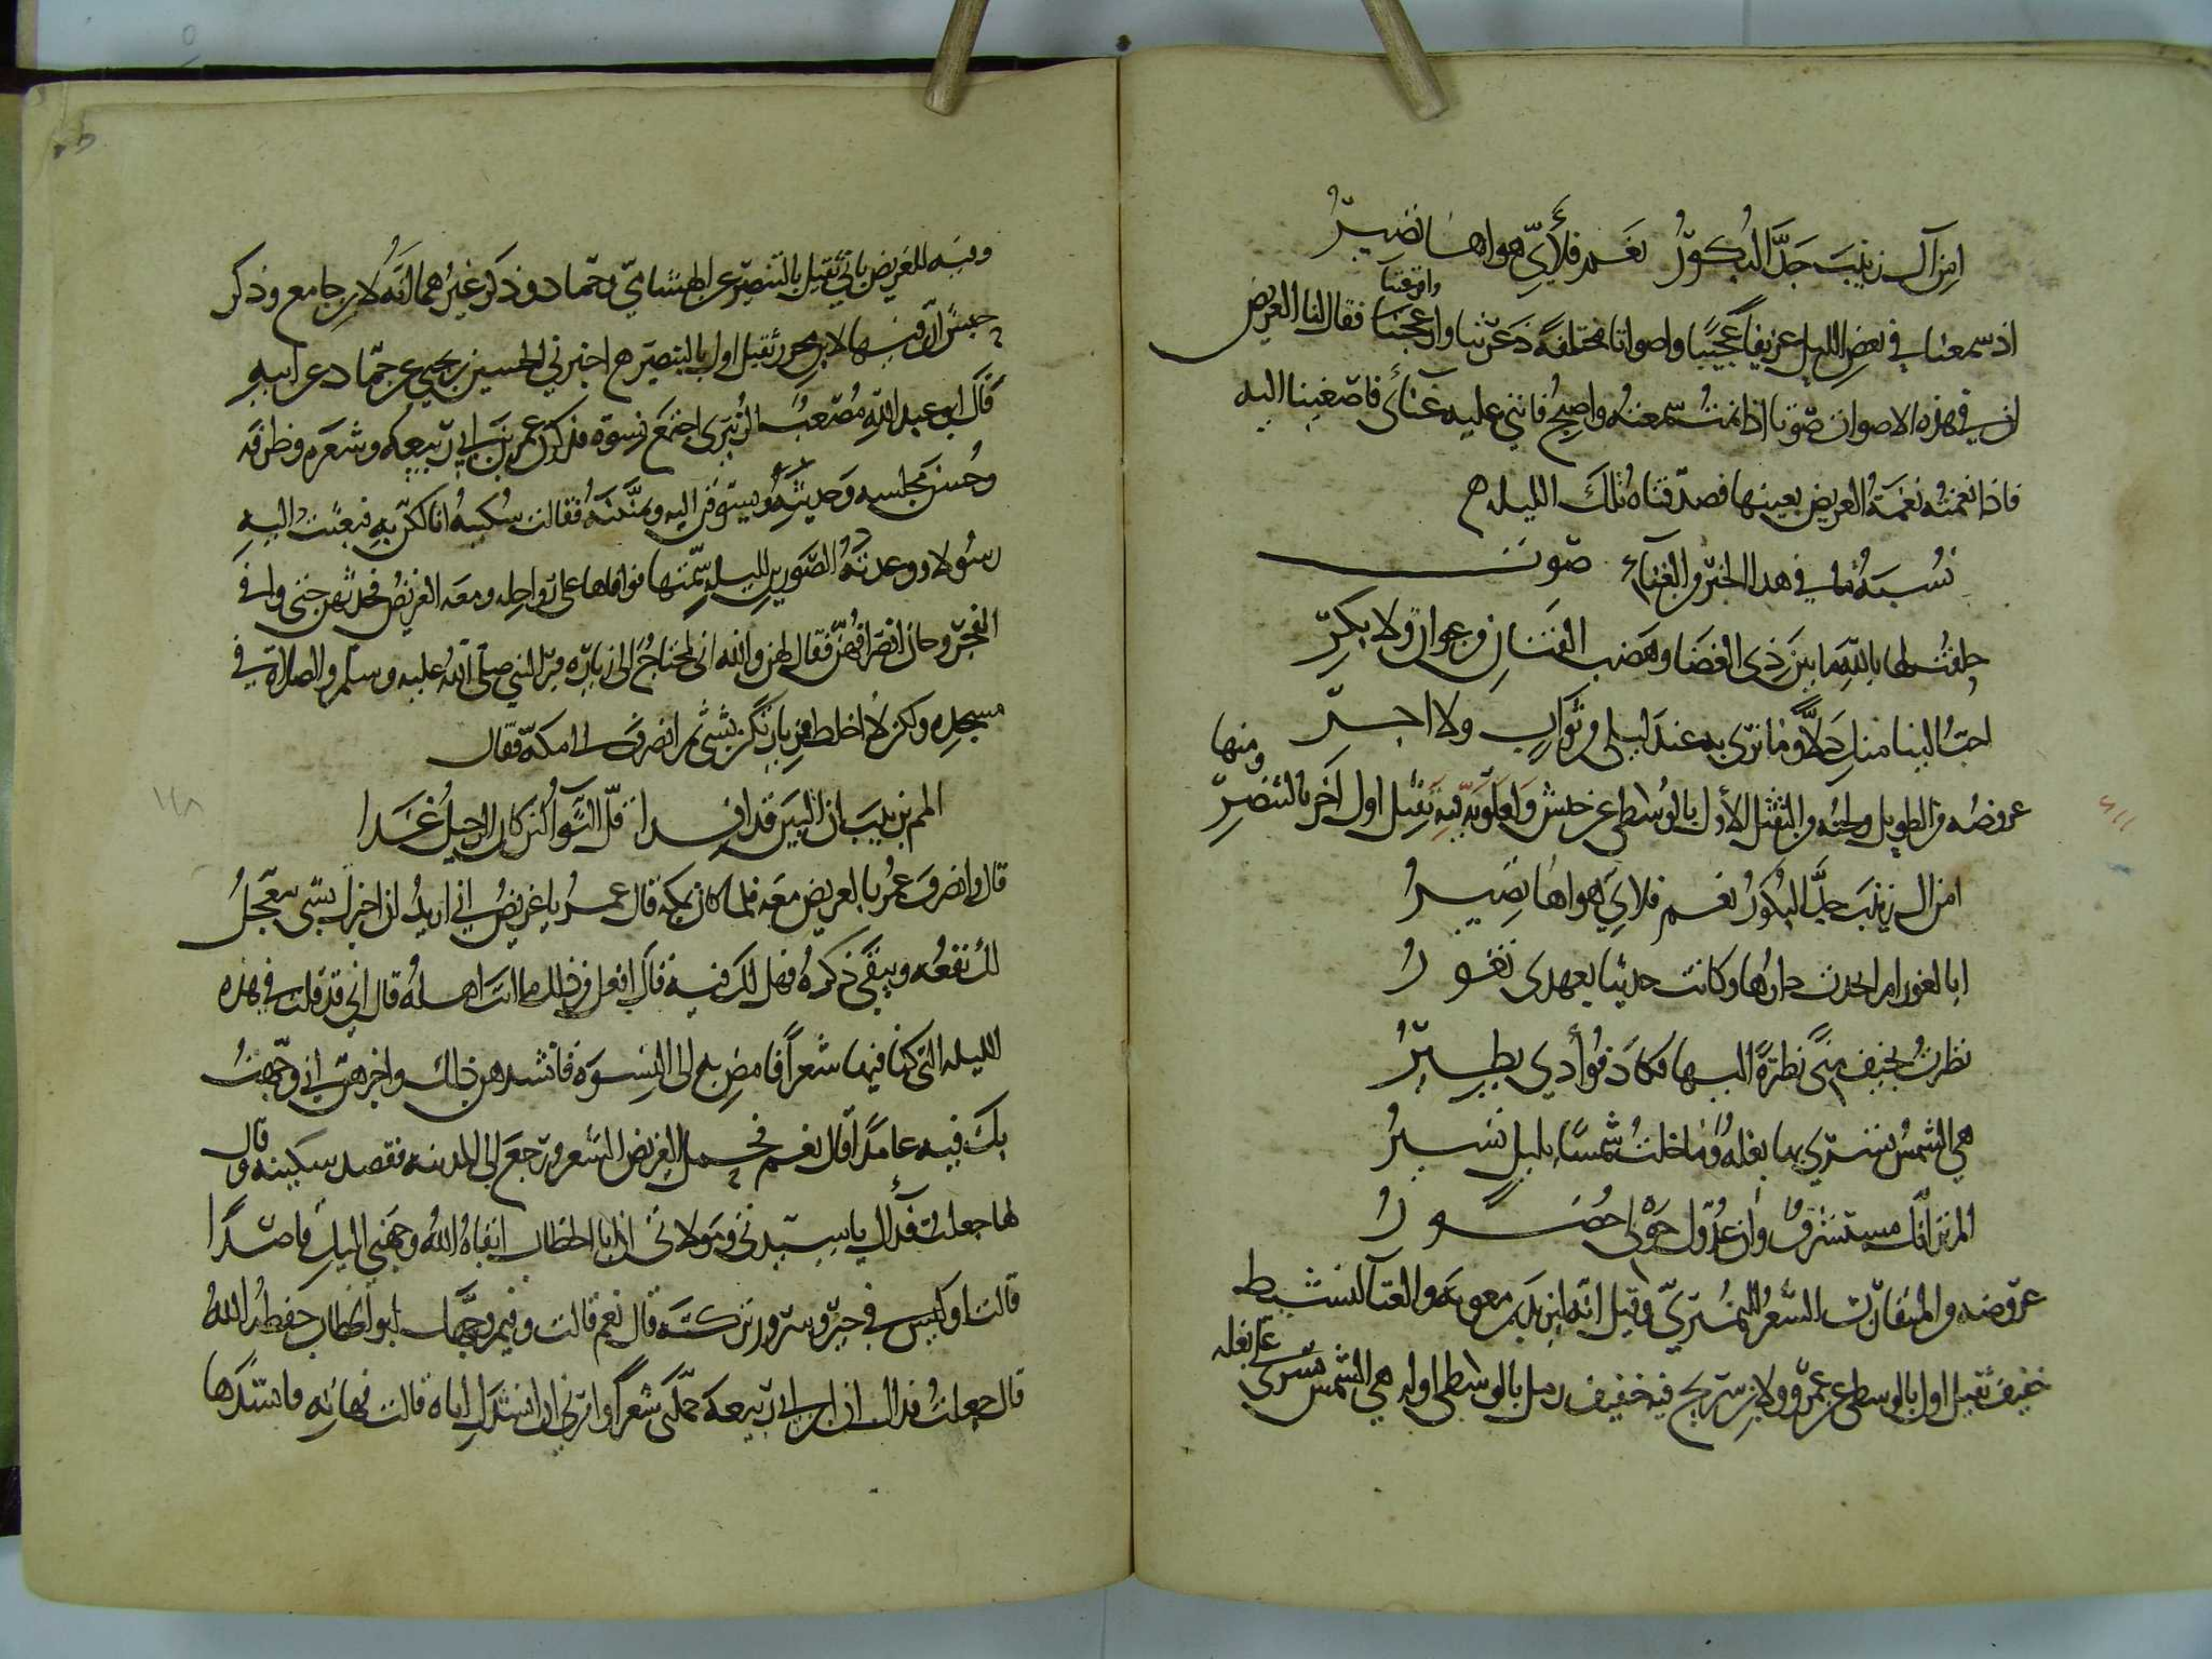 امن آل زينب جد البكور نعم فلأي هواها تصير
اذ سمعنا في بعض الليل عزيفا عجيبا واصواتا مختلفة ذعرتنا وازعجتنا وافزعتنا فقال لنا الغريض
ان في هذه الاصوات صوتا اذا نمت سمعته واصبح فابني عليه غنائي فاصغينا اليه
فاذا نغمته نغمة الغريض بعينها فصدقناه تلك الليله
نسبة ما في هذا الخبر من الغناء صوت
حلفت لها بالله ما بين ذي الغضا وهضب القنان من عوان ولا بكر
احب الينا منك دلا وما نرى به عند ليلى من ثواب ولا اجر
ومنها
عروضه من الطويل ولحنه من الثقيل الاول بالوسطى عن حبش ولعلويه فيه ثقيل اول آخر بالبنصر
امن ال زينب جد البكور نعم فلاي هواها تصير
ابا الغور ام انجدت دارها وكانت حديثا بعهدى تغور
نظرت بخيف منى نظرة اليها فكاد فؤادي يطير
هي الشمس تسري بها بغله وما خلت شمسا بليل تسير
الم تر انك مستشرف وان عدوك حولى حضور
عروضه من المتقارب الشعر للنميري وقيل انه ليزيد بن معويه والغنآ لنشيط
خفيف ثقيل اول بالوسطى عن عمرو ولابن سريج فيه خفيف رمل بالوسطى اوله هي الشمس تسرى على بغله
وفيه للغريض ثاني ثقيل بالبنصر عن الهشامي وحماد وذكر غيرهما انه لابن جامع وذكر
حبش ان فيها لابن محرز ثقيل اول بالبنصر اخبرني الحسين بن يحيى عن حماد عن ابيه
قال ابو عبد الله مصعب الزبيري اجتمع نسوة فذكرن عمر بن ابي ربيعه وشعره وظرفه
وحسن مجلسه وحديثه فتشوقن اليه وتمنينه فقالت سكينه انا لكن به فبعثت اليه
رسولا ووعدته الصورين لليلة سمتها فوافاها على رواحله ومعه الغريض فحدثهن حتى وافى
الفجر وحان انصرافهن فقال لهن والله اني لمحتاج الى زيارة قبر النبي صلى الله عليه وسلم والصلاة في
مسجده ولكن لا اخلط بزيارتكن شئ ثم انصرف الى مكة فقال
المم بزينب ان البين قد افدا قل الثوآ لئن كان الرحيل غدا
قال وانصرف عمر بالغريض معه فلما كان بمكه قال عمر يا غريض اني اريد ان اخبرك بشي يتعجل
لك نفعه ويبقى ذكره فهل لك فيه قال افعل من ذلك ما انت اهله قال اني قد قلت في هذه
الليله التي كنا فيها شعرا فامض به الى النسوة فانشدهن ذلك واخبرهن اني وجهت
بك فيه عامدا قال نعم فحمل الغريض الشعر ورجع الى المدينه فقصد سكينه وقال
لها جعلت فدآك يا سيدتي ومولاتي ان ابا الخطاب ابقاه الله وجهني اليك قاصدا
قالت اوليس في خير وسرور تركته قال نعم قالت وفيم وجهك ابو الخطاب حفظه الله
قال جعلت فداك ان ابن ابي ربيعه حملني شعرا وامرني ان انشدك اياه قالت فهاته فانشدها